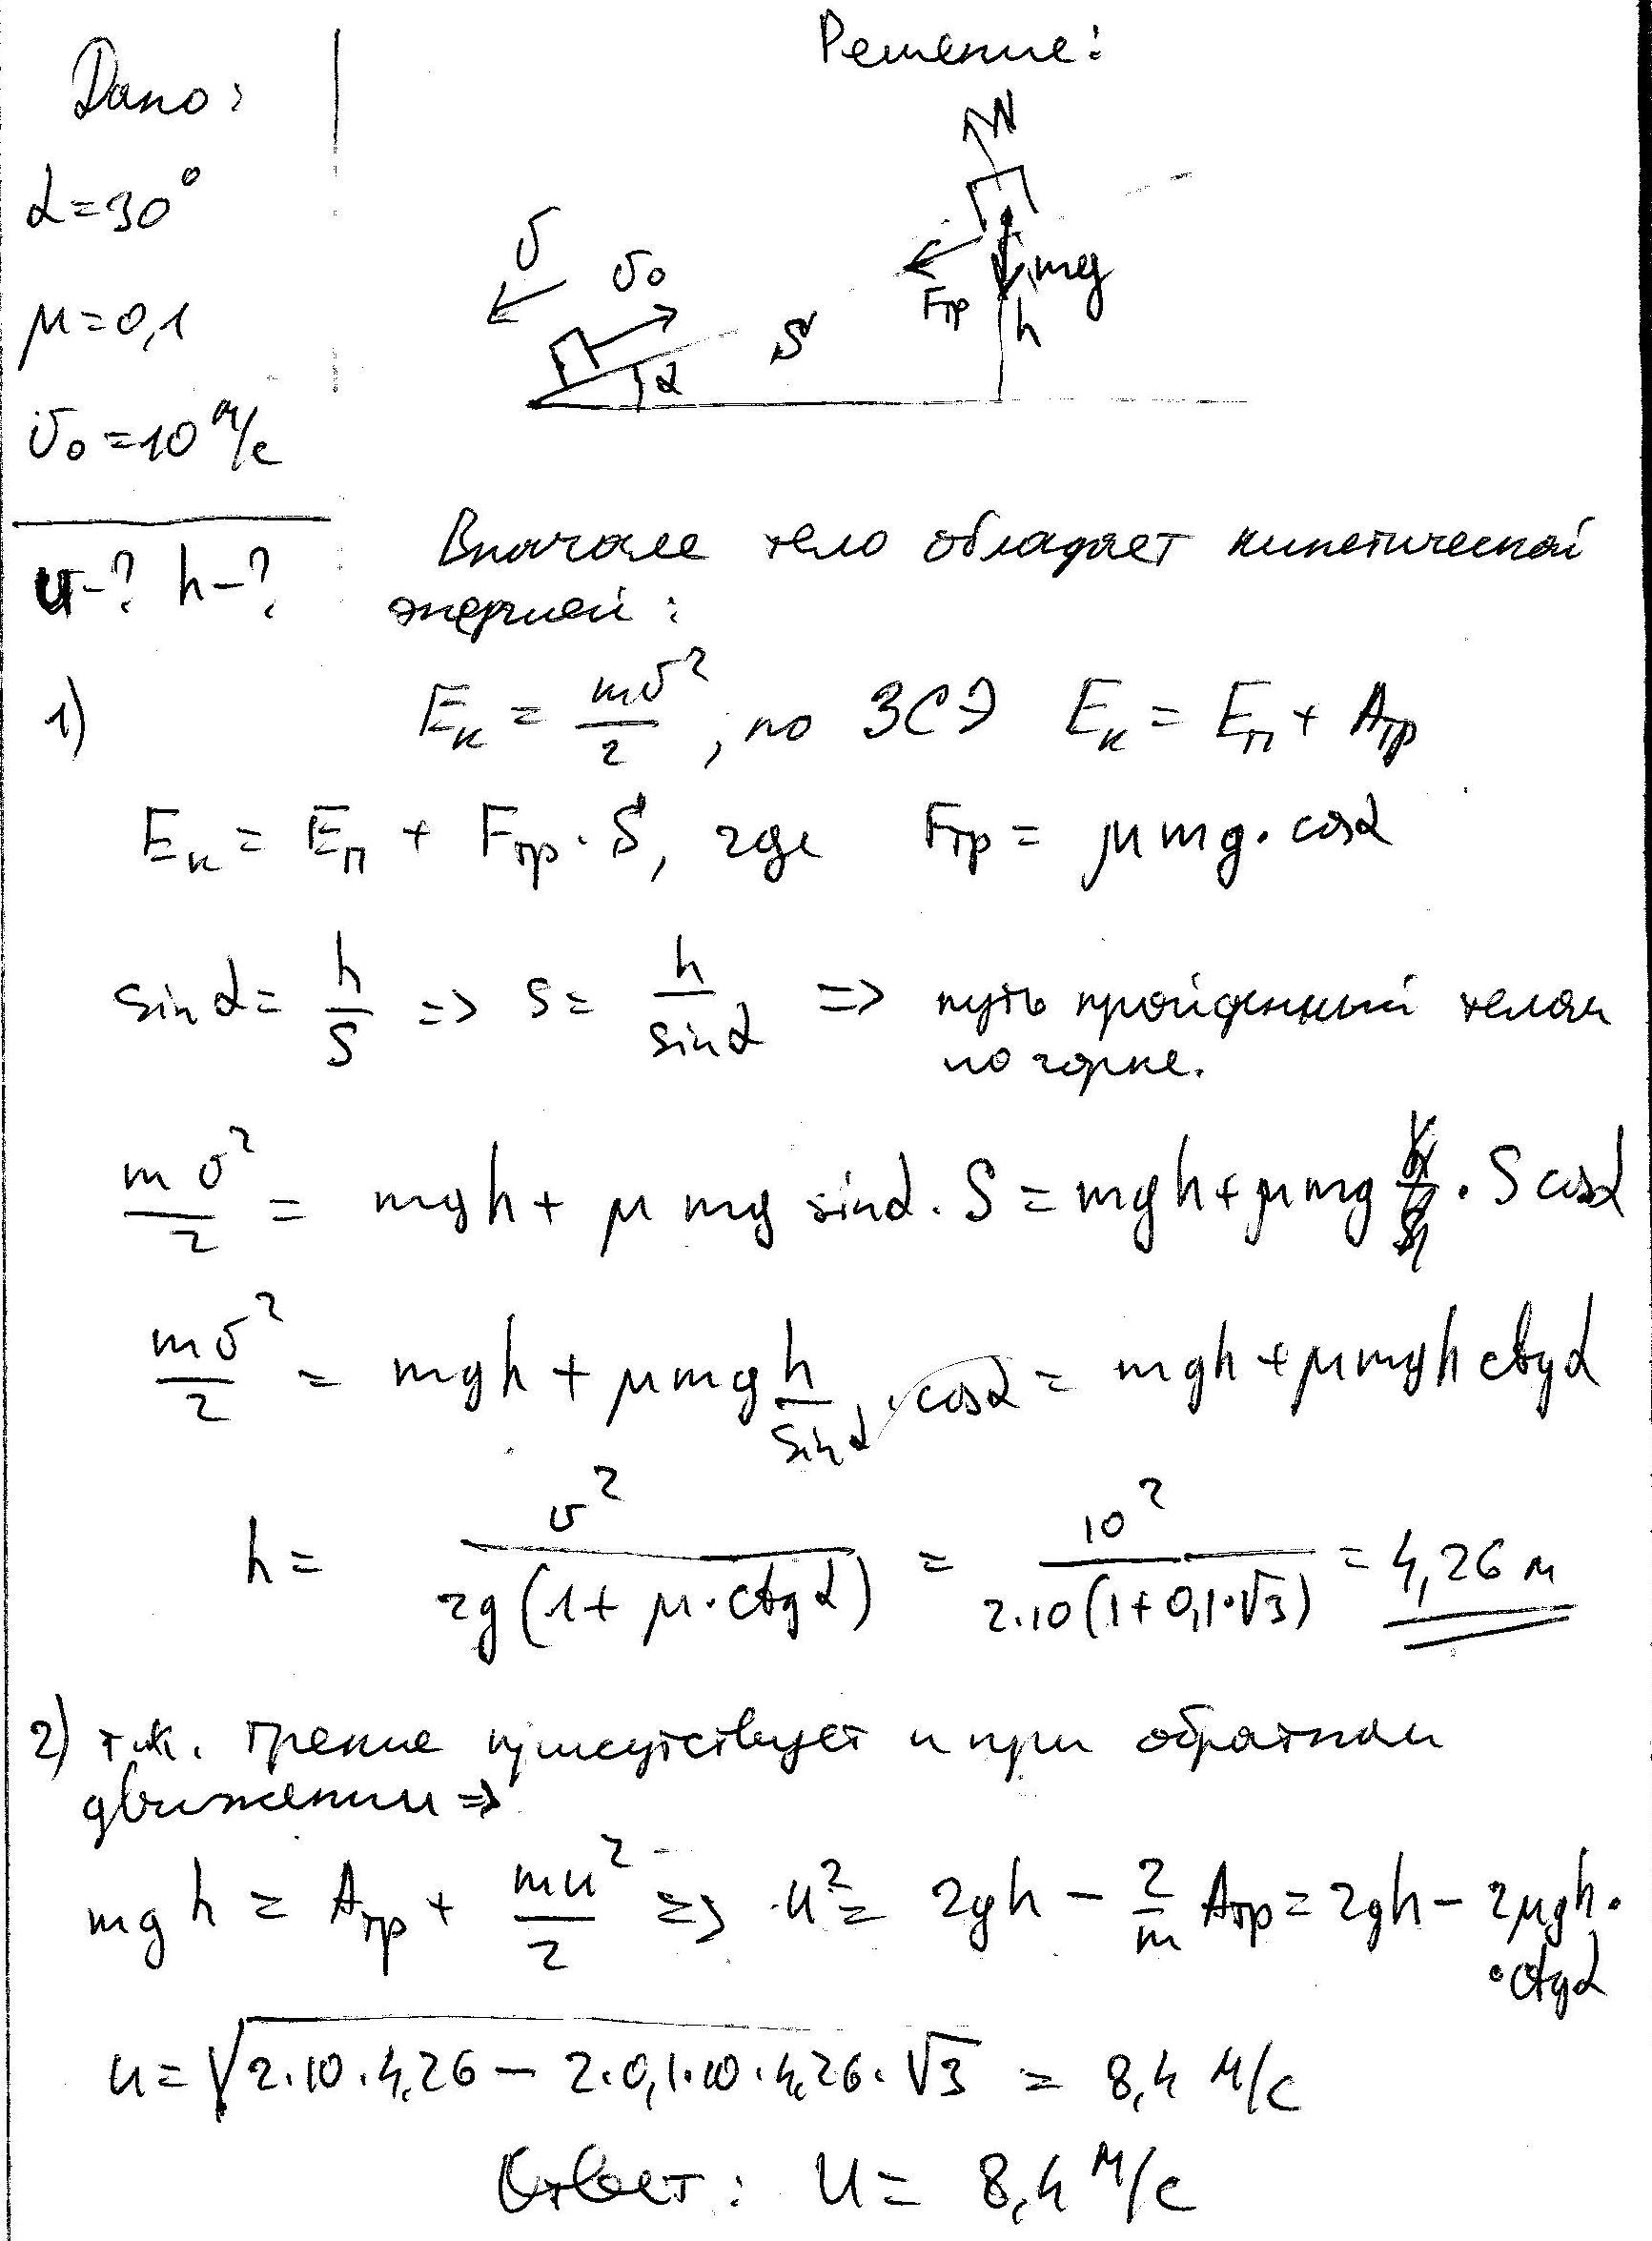 Решение:
Дано:
α=30°
μ=0,1
υ₀=10 м/с
u-? h-?
N
υ
υ₀
mg
Fтр
h
S
α
Вначале тело обладает кинетической
энергией:
1) Eк = mυ²/2, по ЗСЭ Eк = Eп + Aтр
Eк = Eп + Fтр · S, где Fтр = μmg·cosα
sinα = h/S => S = h/sinα => путь пройденный телом
по горке.
mυ²/2 = mgh + μmg sinα · S = mgh + μmg · S cosα
mυ²/2 = mgh + μmg h/sinα · cosα = mgh + μmgh ctgα
h = υ²/2g(1+μ·ctgα) = 10²/2·10(1+0,1·√3) = 4,26 м
2) т.к. трение присутствует и при обратном
движении =>
mgh = Aтр + mu²/2 => u² = 2gh - 2/m Aтр = 2gh - 2μgh·
·ctgα
u = √2·10·4,26 - 2·0,1·10·4,26·√3 = 8,4 м/с
Ответ: u = 8,4 м/с